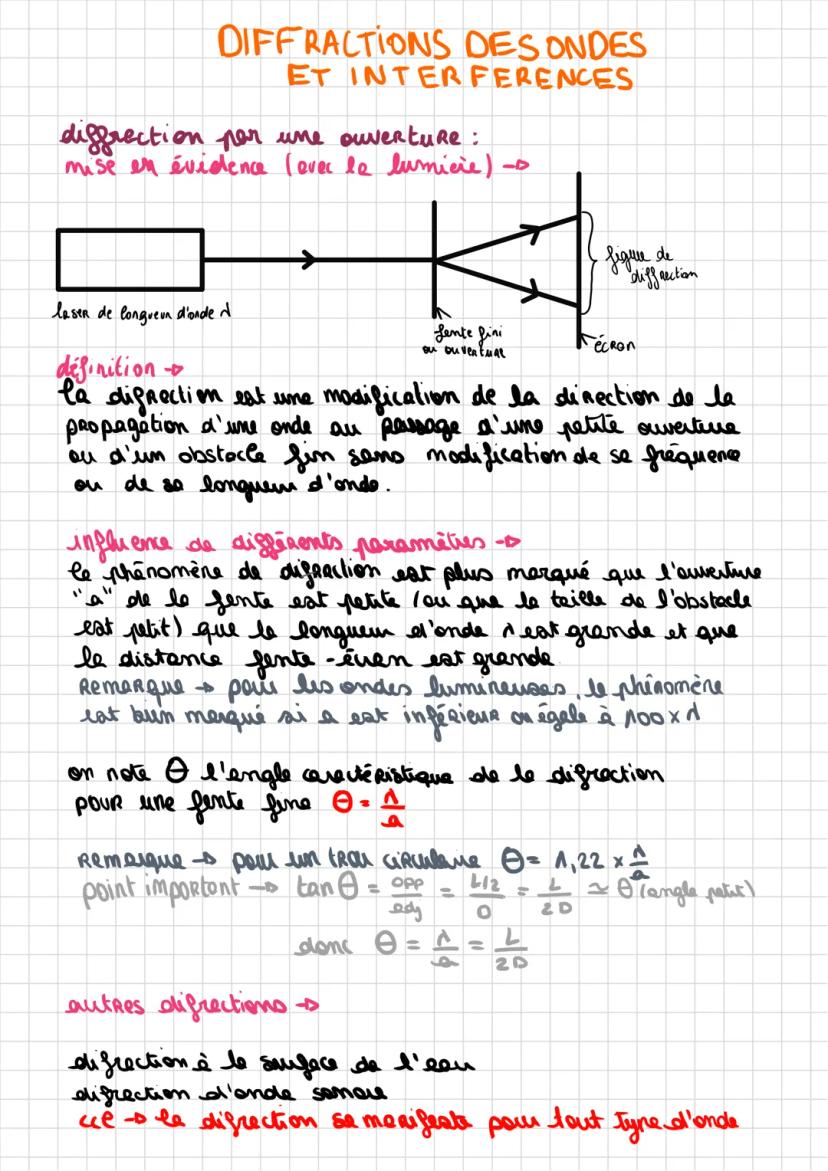 DIFFRACTIONS DES ONDES
ET INTERFERENCES
diffraction par une ouverture :
mise en évidence (avec la lumière) →
figure de
diffraction
laser de longueur d'onde λ
fente fini
ou ouverture
écran
définition →
la difraction est une modification de la direction de la
propagation d'une onde au passage d'une petite ouverture
ou d'un obstacle fin sans modification de sa fréquence
ou de sa longueur d'onde.
influence de différents paramètres →
le phénomène de difraction est plus marqué que l'ouverture
"a" de la fente est petite (ou que la taille de l'obstacle
est petit) que la longueur d'onde λ est grande et que
la distance fente-écran est grande
Remarque → pour les ondes lumineuses, le phénomène
est bien marqué si a est inférieur ou égale à 100 x λ
on note θ l'angle caractéristique de la difraction
pour une fente fine θ = λ/a
Remarque → pour un trou circulaire θ = 1,22 x λ/a
point important → tan θ = opp/adj = L/2/D = L/2D ≃ θ (angle petit)
donc θ = λ/a = L/2D
autres difractions →
difraction à la surface de l'eau
difraction d'onde sonore
ccl → la difraction se manifeste pour tout type d'onde